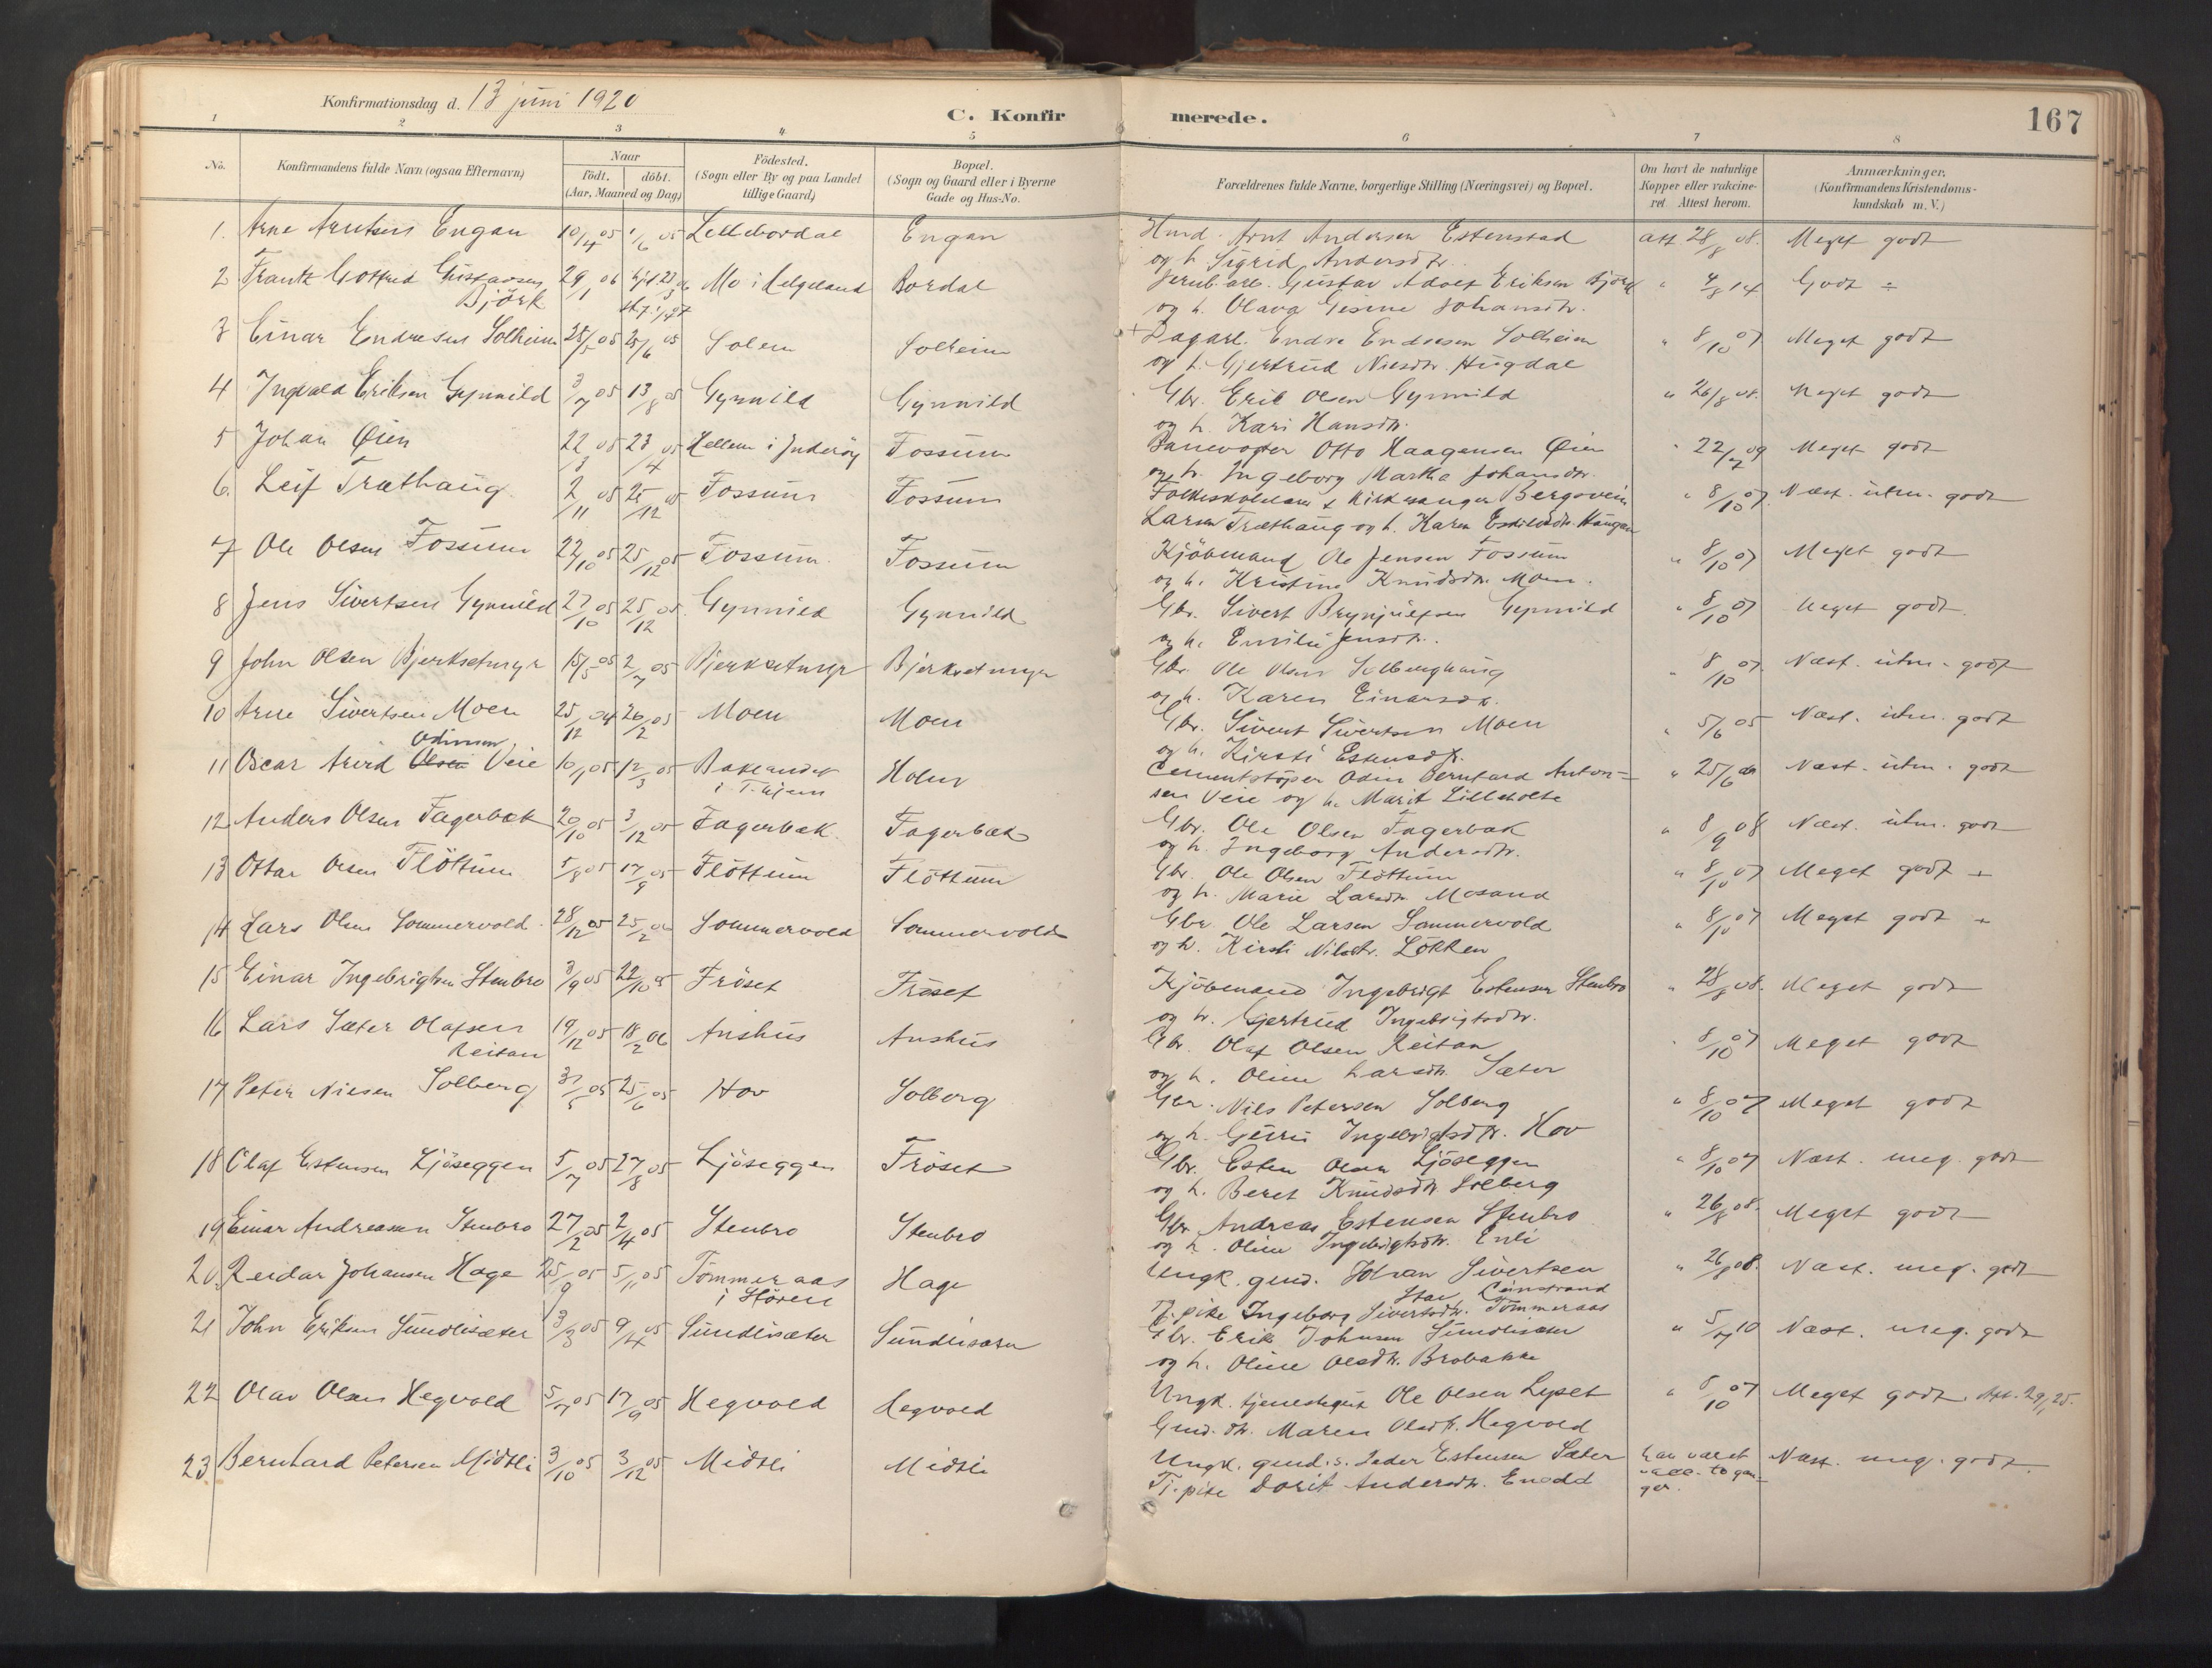 Konfirmationsdag d. 13 juni 1920
C. Konfirmerede.
167
1 2 3 4 5 6 7 8
No.
Konfirmandens fulde Navn (ogsaa Efternavn)
Naar
födt. döbt.
(Aar, Maaned og Dag)
Födested.
(Sogn eller By og paa Landet
tillige Gaard)
Bopæl.
(Sogn og Gaard eller i Byerne
Gade og Hus-No.
Forældrenes fulde Navne, borgerlige Stilling (Næringsvei) og Bopæl.
Om havt de naturlige
Kopper eller vakcine-
ret. Attest herom.
Anmærkninger.
(Konfirmandens Kristendoms-
kundskab m. V.)
1. Arne Arntsen Engan 10/4 05 1/6 05 Lillebordal Engan Husd. Arnt Andersen Estenstad att 28/8 08. Meget godt
og h. Sigrid Andersdtr.
2 Frantz Gotfred Gustavsen 29/1 06 hjd 23/3 06 Mo i Helgeland Bordal Jernb.arb. Gustav Adolf Eriksen Björk " 4/8 14 Godt ÷
Björk
og h. Olava Gisine Johansdtr.
3 Einar Endresen Solheim 28/5 05 25/6 05 Solem Solheim + Dagarb. Endre Endresen Solheim " 8/10 07 Meget godt
og h. Gjertrud Nilsdtr. Hugdal
4 Ingvald Eriksen Gynnild 3/7 05 13/8 05 Gynnild Gynnild Gbr. Erik Olsen Gynnild " 26/8 08. Meget godt
og h. Kari Hansdtr.
5 Johan Øien 22/3 05 23/4 05 Hellem i Inderöy Fossum Banevogter Otto Haagensen Øien " 22/7 09 Meget godt
og h. Ingeborg Martha Johansdtr.
6. Leif Træthaug 2/11 05 25/12 05 Fossum Fossum Folkeskolelærer & Kirkesanger Bergsvein " 8/10 07. Næst. utm. godt
Larsen Træthaug og h. Karen Eskilsdtr. Haugen
7 Ole Olsen Fossum 22/10 05 25/12 05 Fossum. Fossum Kjöbmand Ole Jensen Fossum " 8/10 07 Meget godt
og h. Kristine Knudsdtr. Moen.
8 Jens Sivertsen Gynnild 27/10 05 25/12 05. Gynnild Gynnild Gbr. Sivert Brynjulfsen Gynnild " 8/10 07 Meget godt.
og h. Emilie Jensdtr.
9 John Olsen Bjerksetmyr 15/5 05 2/7 05 Bjerksetmyr Bjerksetmyr Gbr. Ole Olsen Solberghaug " 8/10 07. Næst. utm. godt
og h. Karen Einarsdtr.
10 Arne Sivertsen Moen 25/12 04 26/2 05 Moen Moen Gbr. Sivert Sivertsen Moen " 5/6 05 Næst. utm. godt
og h. Kirsti Estensdtr.
Odinsen
11 Oscar Arvid Olsen Veie 10/1 05 12/3 05 Baklandet Holm Cementstöper Odin Bernhard Anton- " 25/6 Næst. utm. godt
i T.hjem
sen Veie og h. Marit Lilleholte
12 Anders Olsen Fagerbæk 20/10 05 3/12 05 Fagerbæk Fagerbæk Gbr. Ole Olsen Fagerbæk " 8/9 08 Næst. utm. godt
og h. Ingeborg Andersdtr.
13 Ottar Olsen Flöttum 5/8 05 17/9 05 Flöttum Flöttum Gbr. Ole Olsen Flöttum " 8/10 07 Meget godt ÷
og h. Marie Larsdtr. Mosand
14 Lars Olsen Sommervold 28/12 05 25/2 06 Sommervold Sommervold Gbr Ole Larsen Sommervold " 8/10 07 Meget godt ÷
og h. Kirsti Nilsdtr. Lökken
15 Einar Ingebrigtsen Stenbro 3/9 05 22/10 05 Fröset Fröset Kjöbmand Ingebrigt Estensen Stenbro " 28/8 08. Meget godt
og h. Gjertrud Ingebrigtsdtr.
16 Lars Sæter Olafsen 19/12 05 18/2 06 Aushus Aushus Gbr. Olaf Olsen Reitan " 8/10 07 Meget godt
Reitan
og h. Oline Larsdtr. Sæter
17 Peter Nilsen Solberg 31/5 05 25/6 05 Hov Solberg Gbr. Nils Petersen Solberg " 8/10 07 Meget godt
og h. Guru Ingebrigtsdtr. Hov
18 Olaf Estensen Ljöseggen 5/7 05 27/8 05 Ljöseggen Fröset Gbr. Esten Olsen Ljöseggen " 8/10 07 Næst. meg. godt
og h. Beret Knudsdtr Solberg
19 Einar Andreassen Stenbro 27/2 05 2/4 05 Stenbro Stenbro Gbr Andreas Estensen Stenbro " 26/8 08. Meget godt
og h. Oline Ingebrigtsdtr. Enli
20. Reidar Johansen Hage 25/9 05 5/11 05 Tömmeraas Hage Ungk. gmd. Johan Sivertsen " 26/8 08. Næst. meg. godt
i Stören
Stav Leinstrand
Tj. pike Ingeborg Sivertsdtr. Tömmeraas
21 John Eriksen Sundlisæter 3/3 05 9/4 05 Sundlisæter Sundlisæter Gbr. Erik Johnsen Sundlisæter " 5/7 10 Næst. meg. godt
og h. Oline Olsdtr. Brobakke
22 Olav Olsen Hegvold 5/7 05 17/9 05 Hegvold Hegvold Ungk. tjenestegut Ole Olsen Lyset " 8/10 07 Meget godt. Att. 29/1 25.
Gmd. dtr. Maren Olsdtr. Hegvold
23 Bernhard Petersen Midtli 3/10 05 3/12 05 Midtli Midtli Ungk. gmd.s. Peder Estensen Sæter har været Næst. meg. godt.
Tj. pike Dorit Andersdtr. Enodd vacc. to gan-
ger.